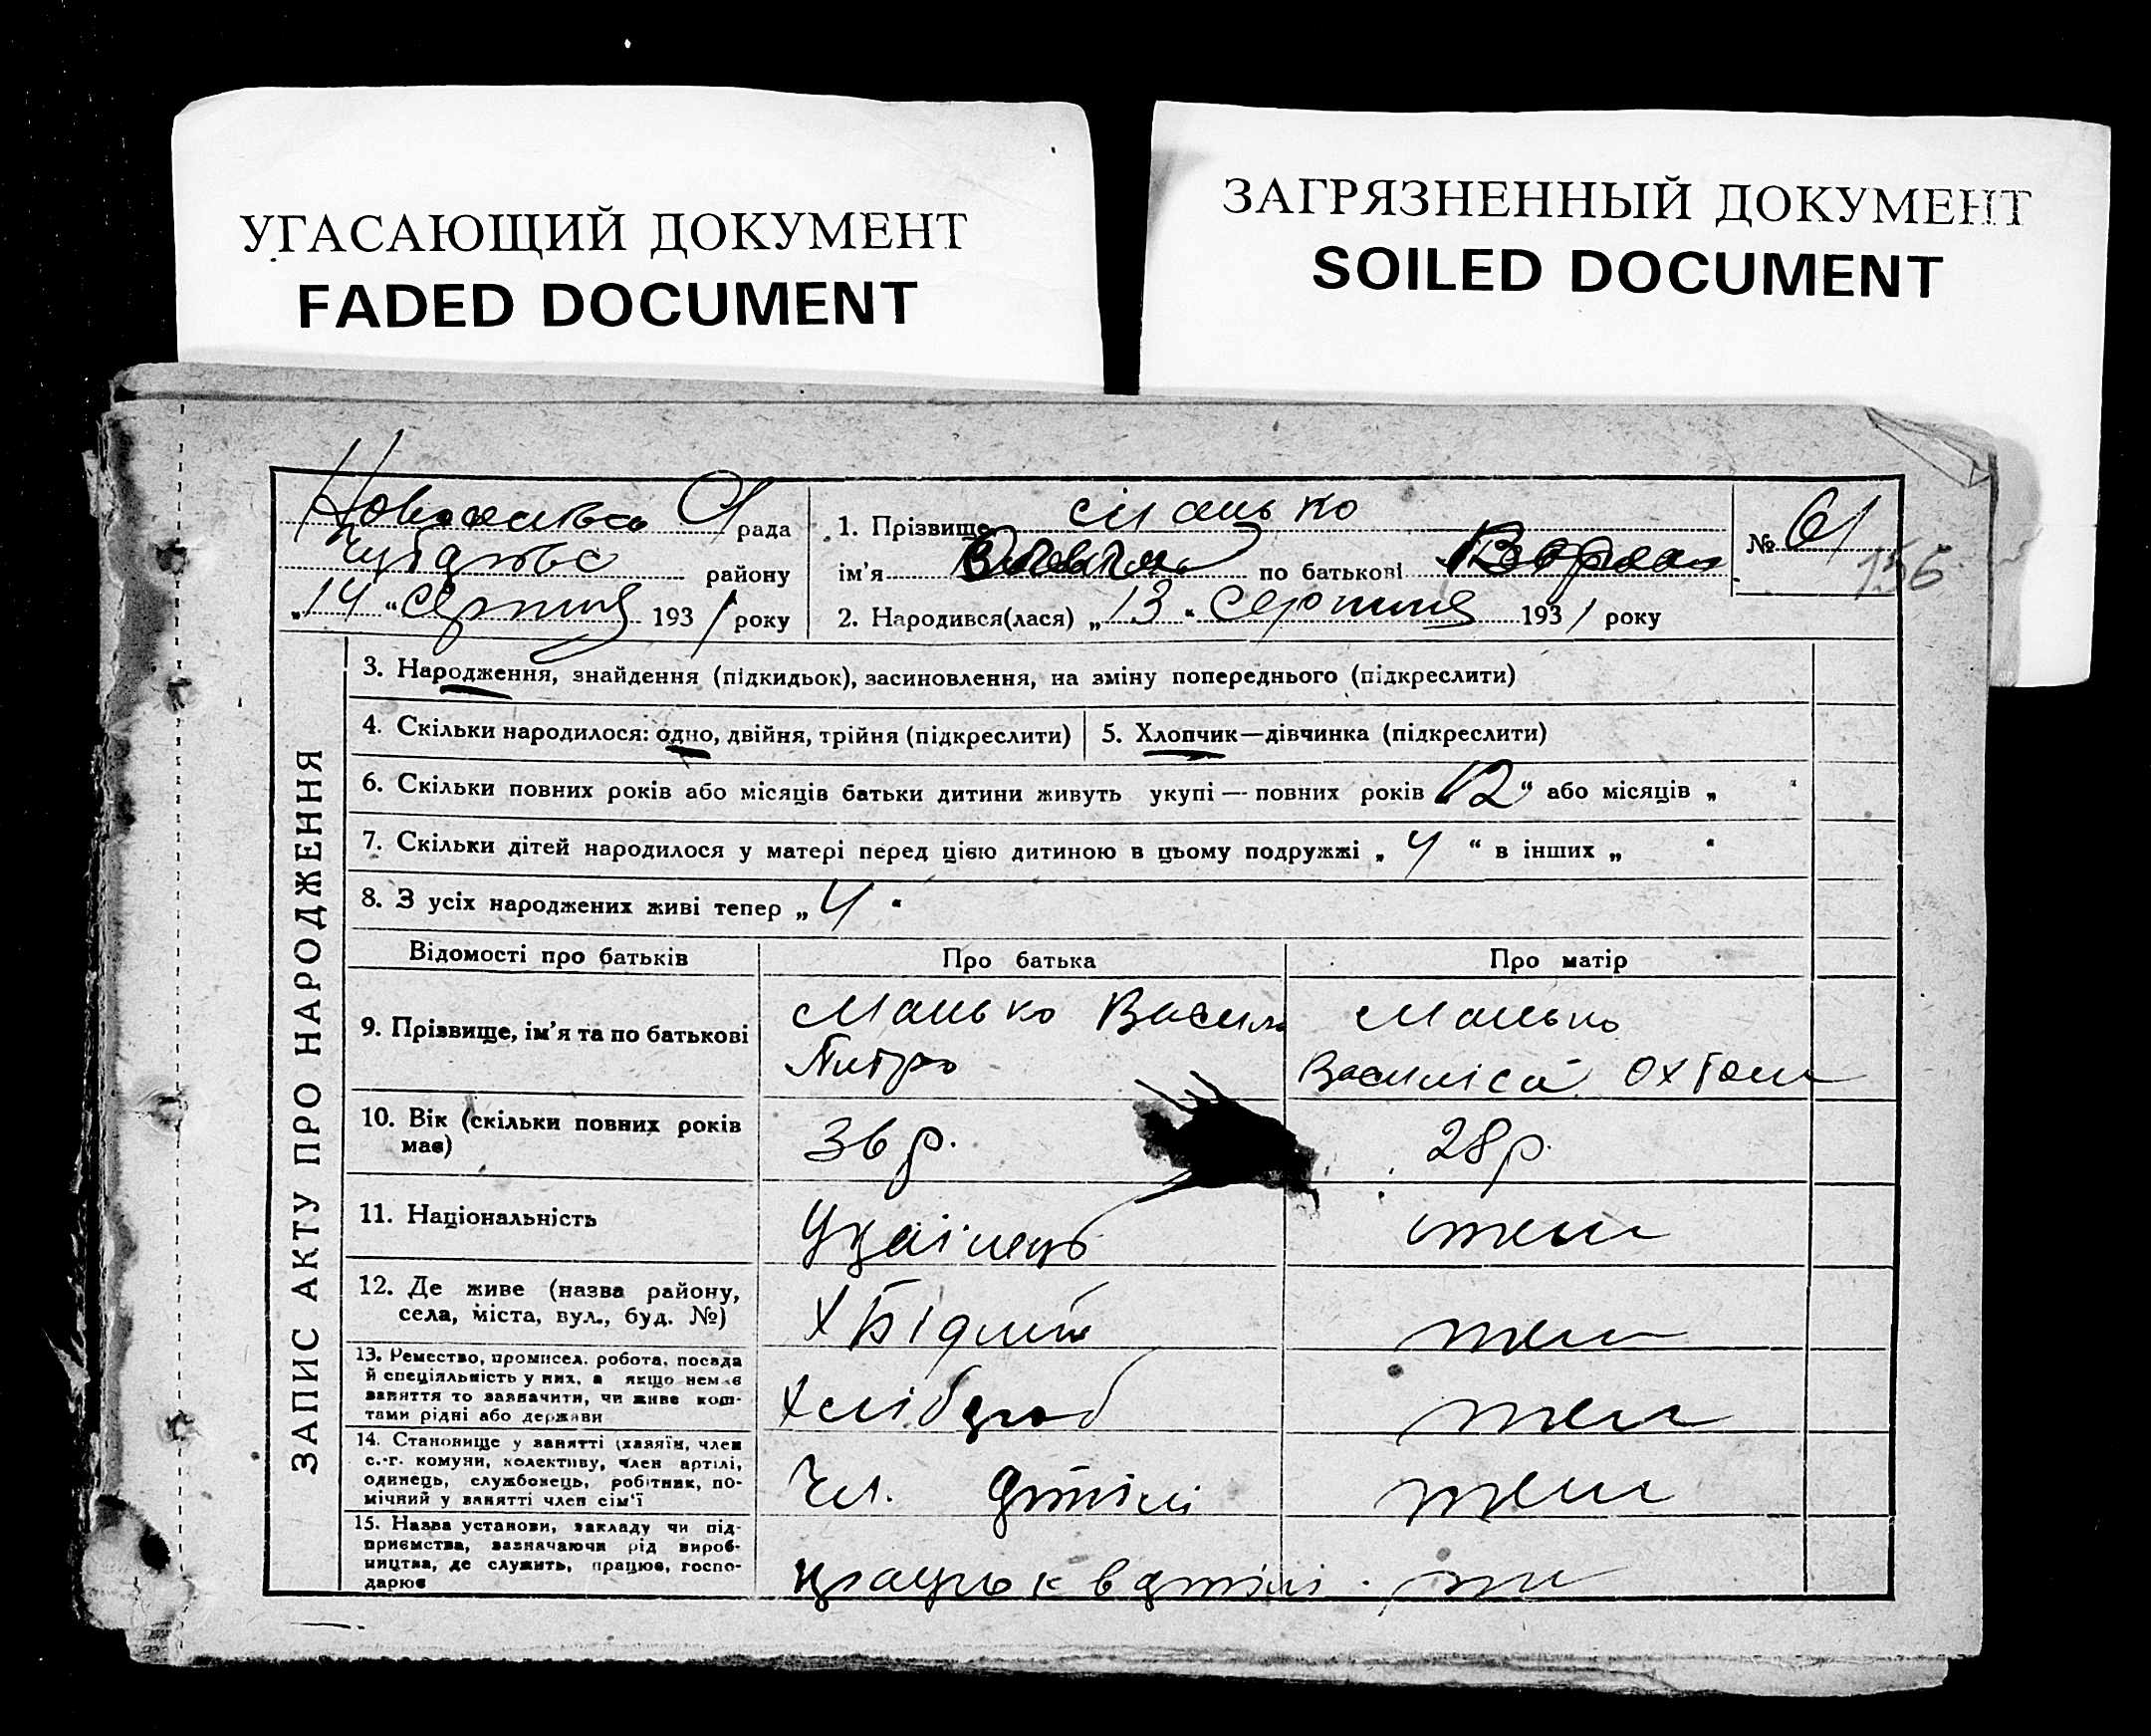 УГАСАЮЩИЙ ДОКУМЕНТ
FADED DOCUMENT
ЗАГРЯЗНЕННЫЙ ДОКУМЕНТ
SOILED DOCUMENT
рада
району
„14“ серпня 1931 року
1. Прізвище Манько
ім’я по батькові
№ 61
156
2. Народився(лася) „13“ серпня 1931 року
ЗАПИС АКТУ ПРО НАРОДЖЕННЯ
3. Народження, знайдення (підкидьок), засиновлення, на зміну попереднього (підкреслити)
4. Скільки народилося: одно, двійня, трійня (підкреслити)
5. Хлопчик—дівчинка (підкреслити)
6. Скільки повних років або місяців батьки дитини живуть укупі — повних років „12“ або місяців „ “
7. Скільки дітей народилося у матері перед цією дитиною в цьому подружжі „4“ в інших „ “
8. З усіх народжених живі тепер „4“
Відомості про батьків Про батька Про матір
9. Прізвище, ім’я та по батькові
Манько Васил
Питро
Манько
Василіса
10. Вік (скільки повних років
має)
36 р.
28 р.
11. Національність
Украінець
12. Де живе (назва району,
села, міста, вул., буд. №)
Х Бідний
13. Ремество, промисел, робота, посада
й спеціяльність у них, а якщо немає
заняття то зазначити, чи живе кош-
тами рідні або держави
Хлібороб
14. Становище у занятті (хазяїн, член
с.-г. комуни, колективу, член артілі,
одинець, службовець, робітник, по-
мічний у занятті член сім’ї
Чл. артілі
15. Назва установи, закладу чи під-
приємства, зазначаючи рід вироб-
ництва, де служить, працює, госпо-
дарює
працює в артілі